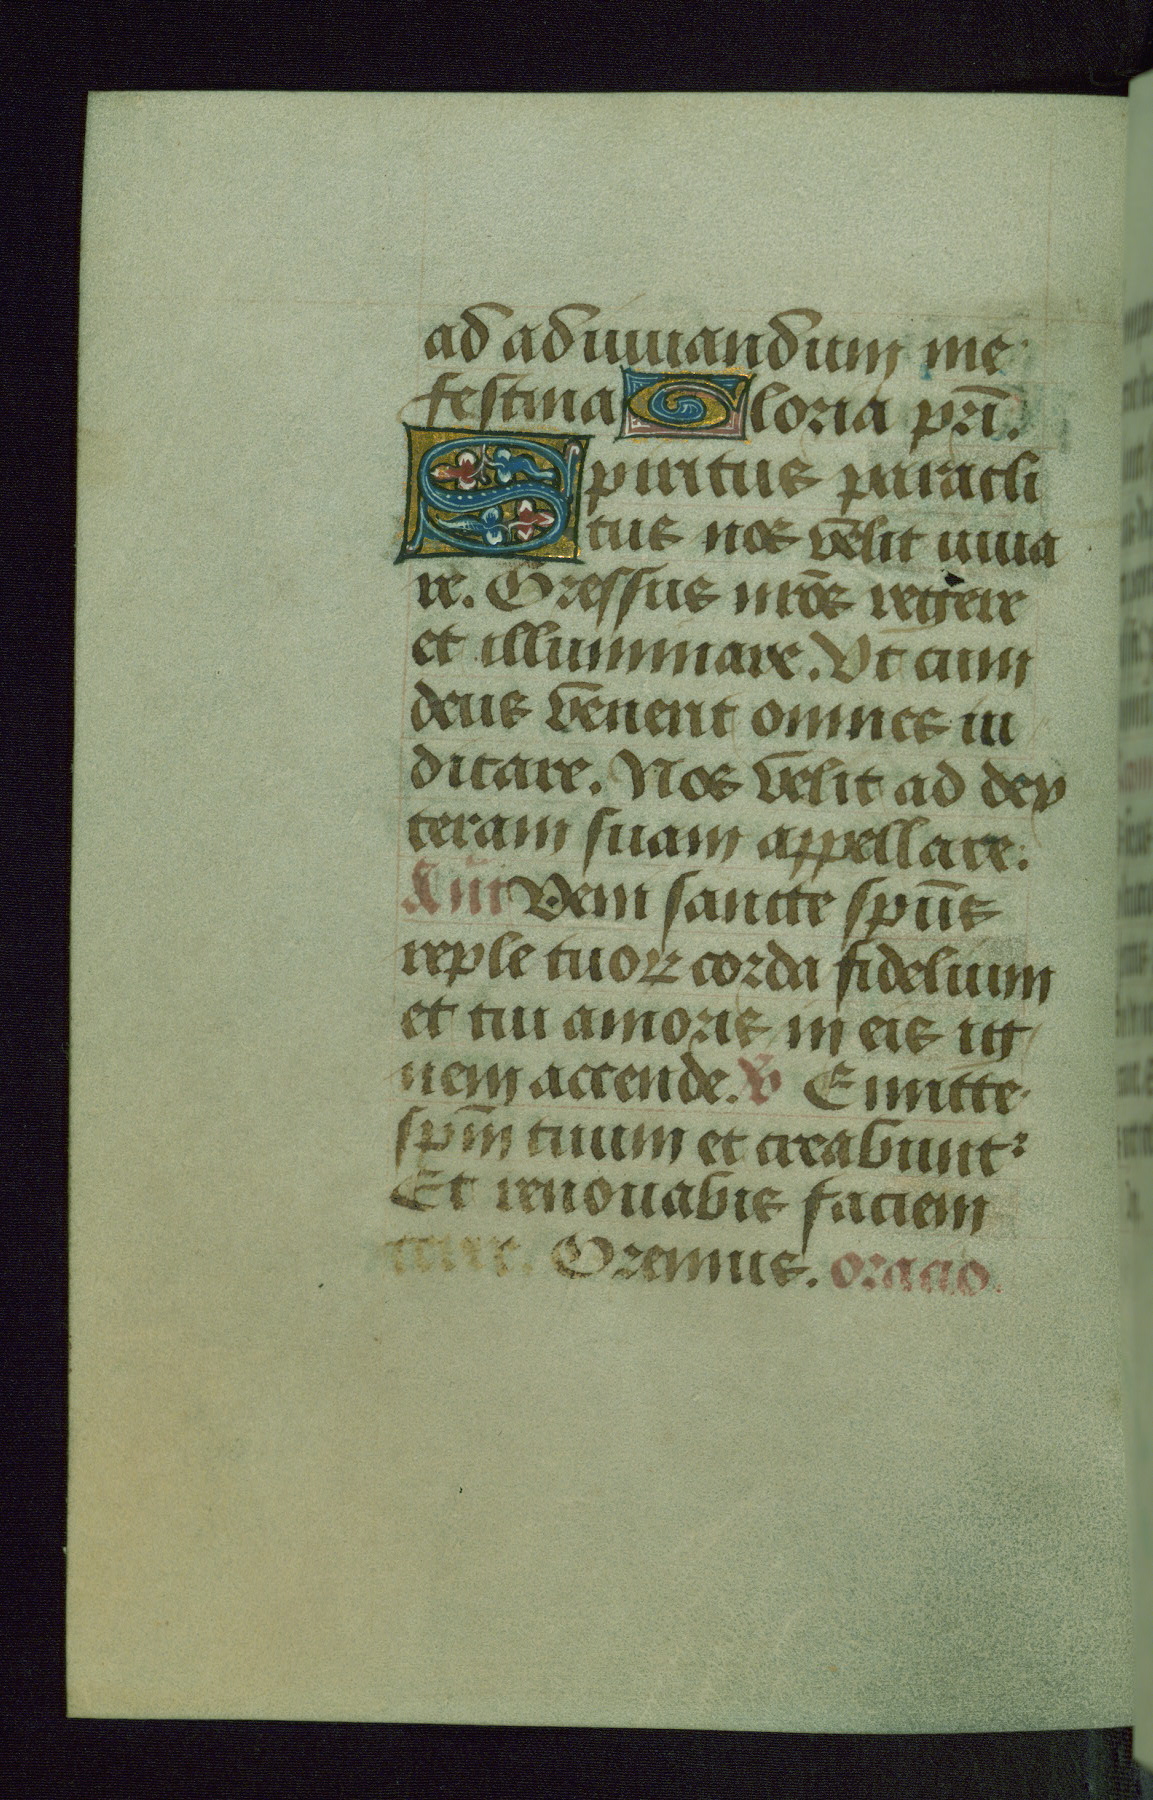 ad adiuuandum me
festina Gloria pr̄i.
Spiritus paracli
tus nos velit iuua
re. Gressus nr̄os regere
et illuminare. Vt cum
deus venerit omnes iu
dicare. Nos velit ad dex
teram suam appellare.
Añt Veni sancte sp̄us
reple tuoꝝ corda fidelium
et tui amoris in eis ig
nem accende. ℣ Emitte
sp̄m tuum et creabunt᷑
Et renouabis faciem
terre. Oremus. oracio